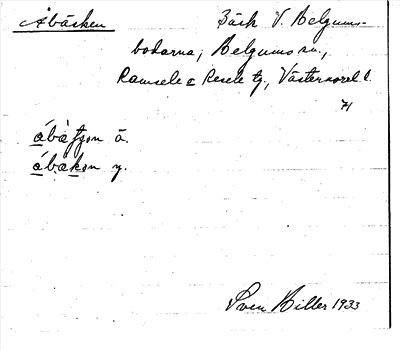 Åbäcken Bäck V. Belgums-
bodarna, Belgumsån,
Ramsele o Resele tg, Västernorrl. l.
71
ábàtʃən ä.
ábàkən y.
Sven Hiller 1933